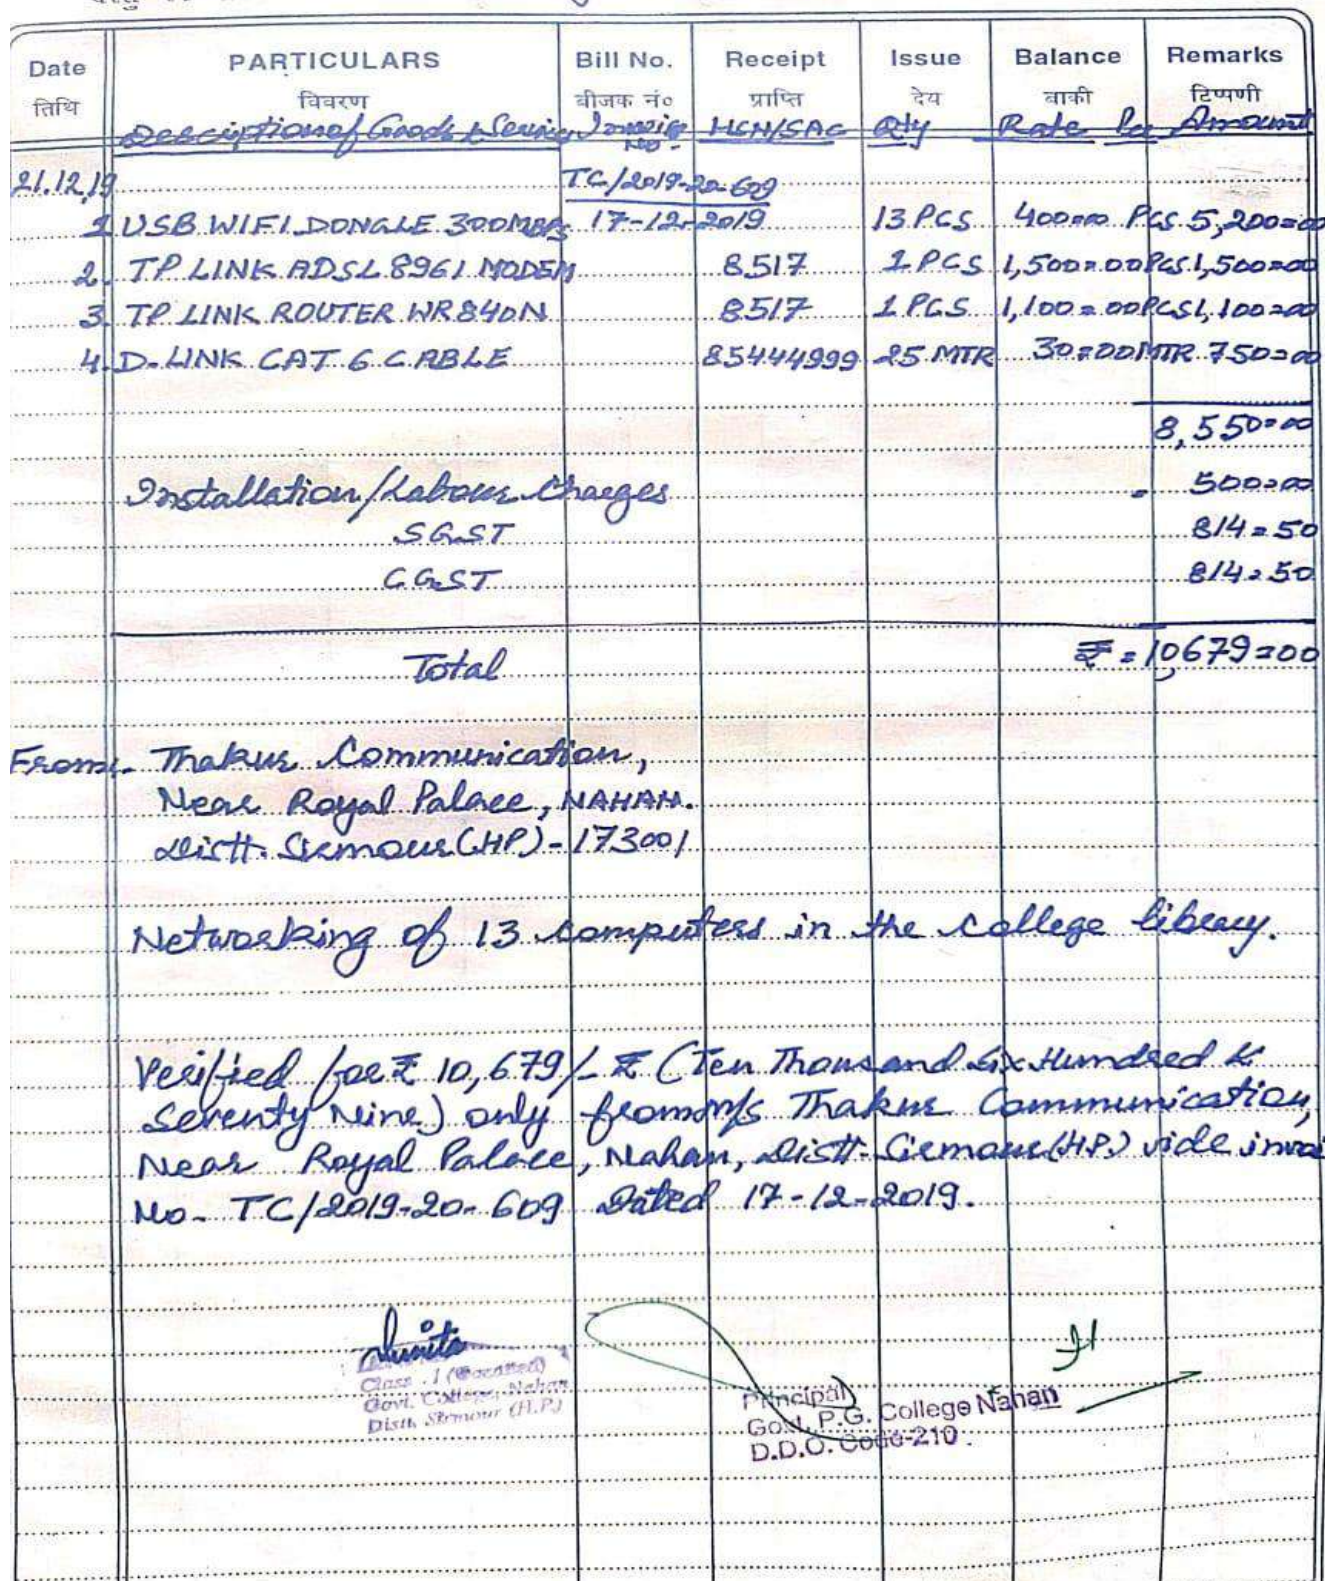 Date PARTICULARS Bill No. Receipt Issue Balance Remarks
तिथि विवरण बीजक नं० प्राप्ति देय बाकी टिप्पणी
Description of Goods & Service Invoice No- HSN/SAC Qty Rate Per Amount
21.12.19 TC/2019-20-609
1 USB WIFI DONGLE 300MBPS 17-12-2019 13 PCS 400=00 PCS 5,200=00
2. TP LINK ADSL 8961 MODEM 8517 1 PCS 1,500=00 PCS 1,500=00
3 TP LINK ROUTER WR840N 8517 1 PCS 1,100=00 PCS 1,100=00
4. D-LINK CAT 6 CABLE 85444999 25 MTR 30=00 MTR 750=00
8,550=00
Installation/Labour Charges 500=00
SGST 814=50
CGST 814=50
Total ₹=10,679=00
From:- Thakur Communication,
Near Royal Palace, NAHAN.
Distt. Sirmour (HP)-173001
Networking of 13 computers in the college library.
Verified for ₹ 10,679/- ₹ (Ten Thousand Six Hundred &
Seventy Nine) only from M/s Thakur Communication,
Near Royal Palace, Nahan, Distt- Sirmour (H.P.) vide invoi
No- TC/2019-20-609 Dated 17-12-2019.
Sunita
Class
Govt. College, Nahan
Distt. Sirmour (H.P.)
Principal
Govt. P.G. College Nahan
D.D.O. Code-210.